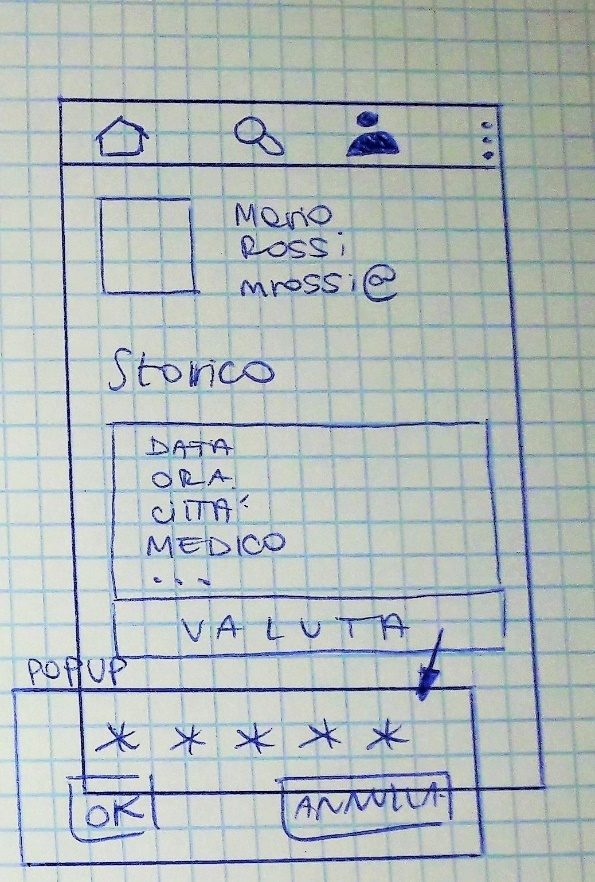 Mario
Rossi
mrossi@
Storico
DATA
ORA
CITTA'
MEDICO
...
VALUTA
POPUP
* * * * *
OK
ANNULLA